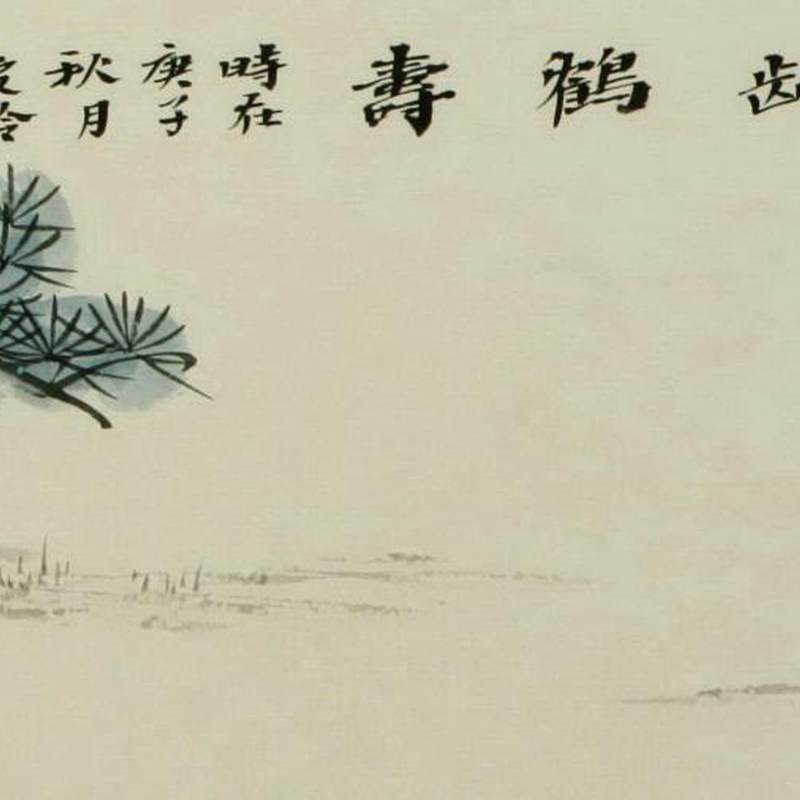 齿
鶴
壽
時在
庚子
秋月